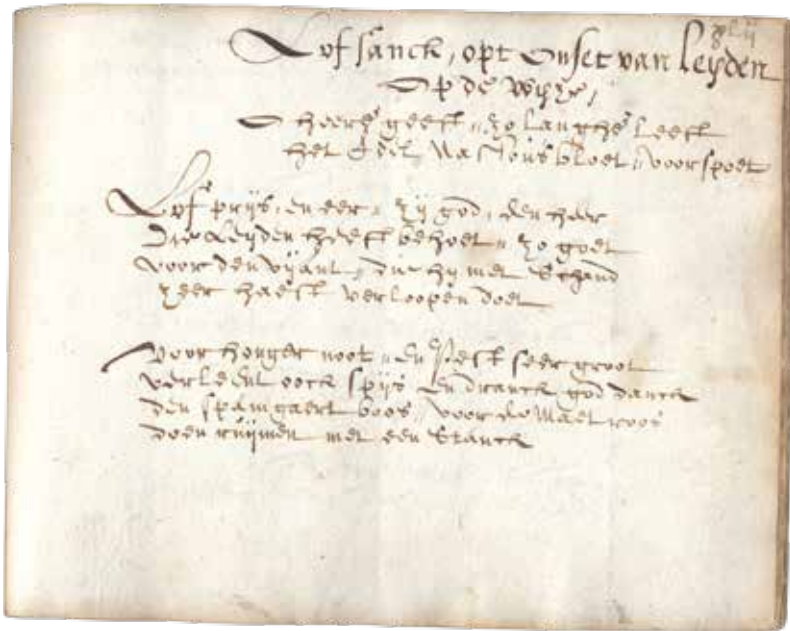 xlij
Lof sanck, opt Onset van Leyden
Op de wyze,
O heere geeft, zo langhe leeft
het Edel Nassous bloet, voorspoet
Lof prijs, en eer, zij god, den heer
Die Leyden heeft behoet, zo goet
voor den vijant, die hij met Schand
zeer haest verloopen doet
Voor honger noot, en Pest seer groot
verleent oock spijs en dranck god danck
den spaingaert boos, voor de Maet roos
doen ruijmen met een Stanck